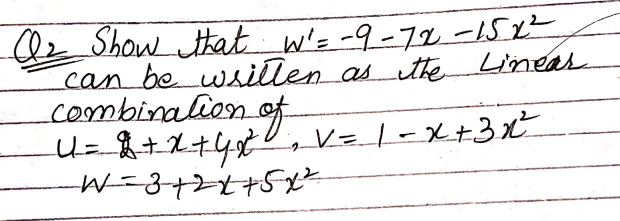 Q2 Show that w' = -9 - 7x - 15x²
can be written as the Linear
combination of
U = 2 + x + 4x², V = 1 - x + 3x²
W = 3 + 2x + 5x²